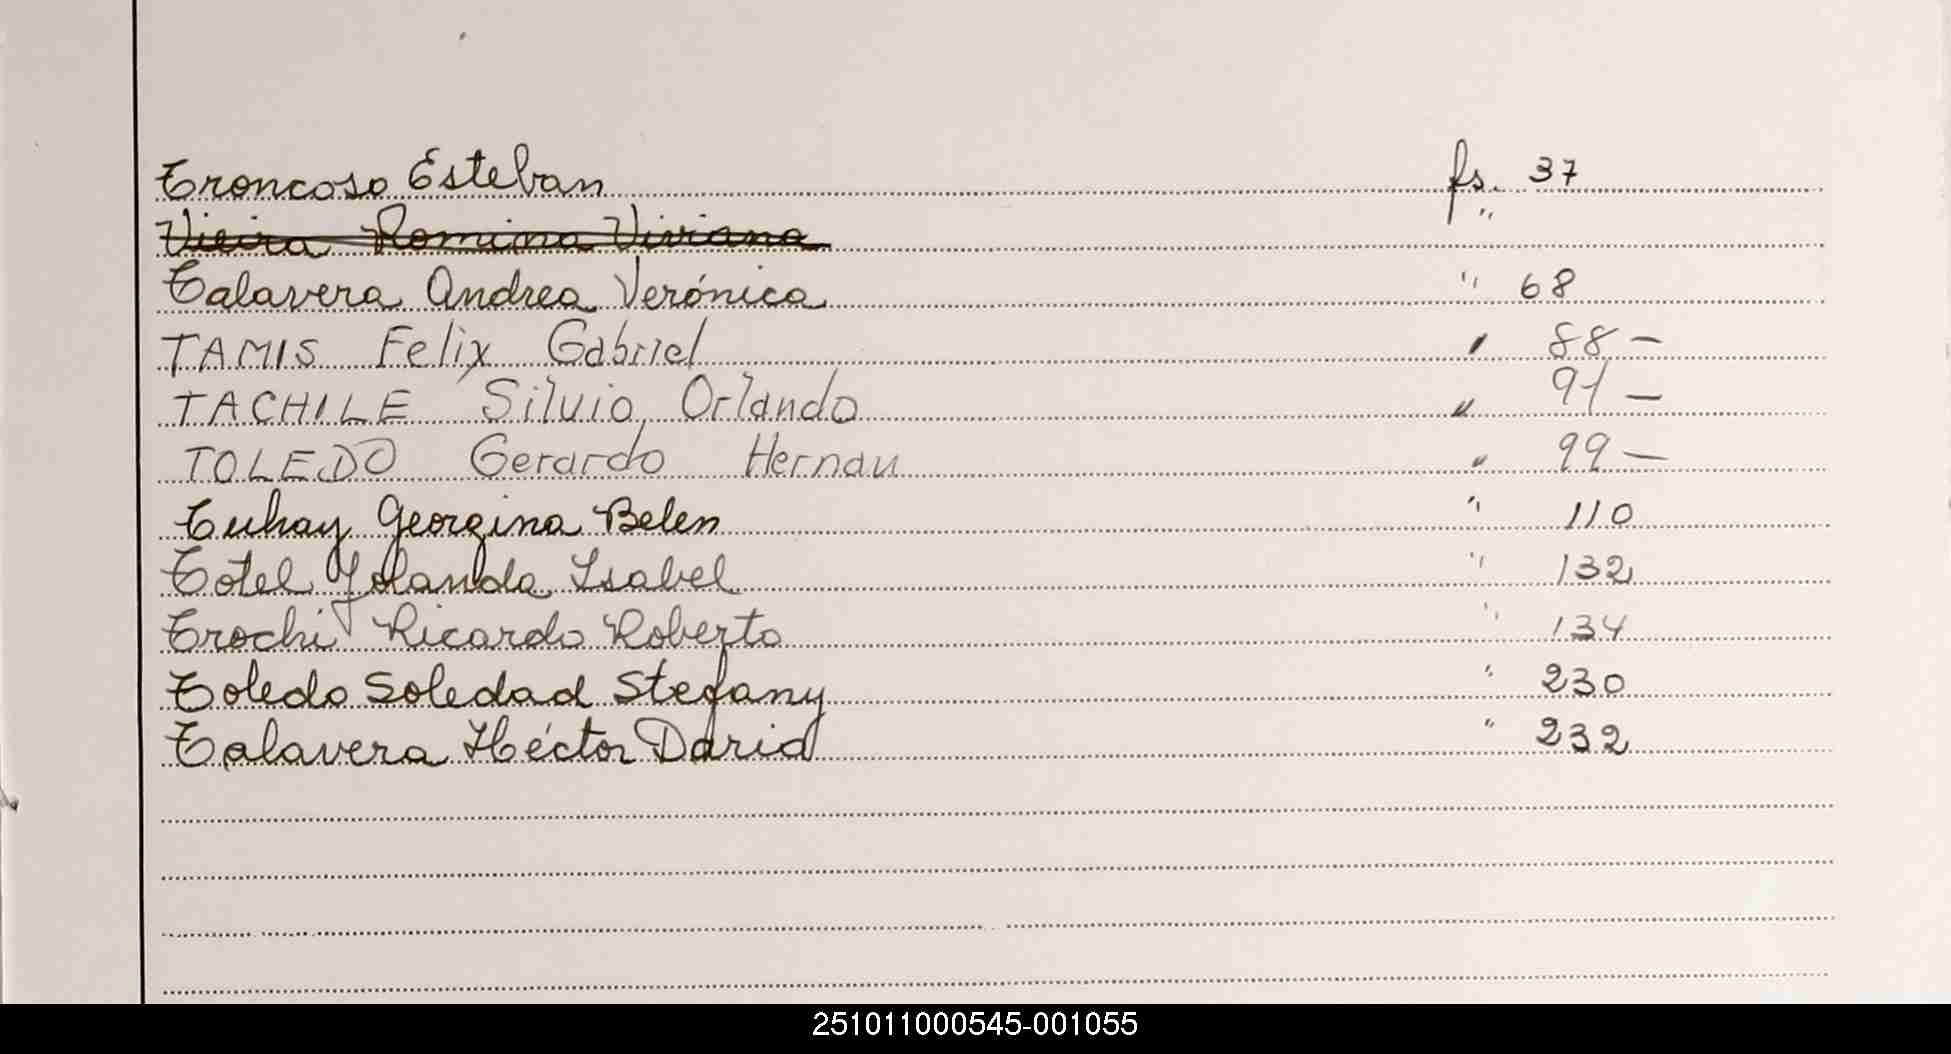 Troncoso Esteban fs. 37
Vieira Romina Viviana "
Talavera Andrea Verónica " 68
TAMIS Felix Gabriel " 88 —
TACHILE Silvio Orlando " 91 —
TOLEDO Gerardo Hernan " 99 —
Tuhay Georgina Belen " 110
Totel Yolanda Isabel " 132
Trochi Ricardo Roberto " 134
Toledo Soledad Stefany " 230
Talavera Héctor Dario " 232
251011000545-001055